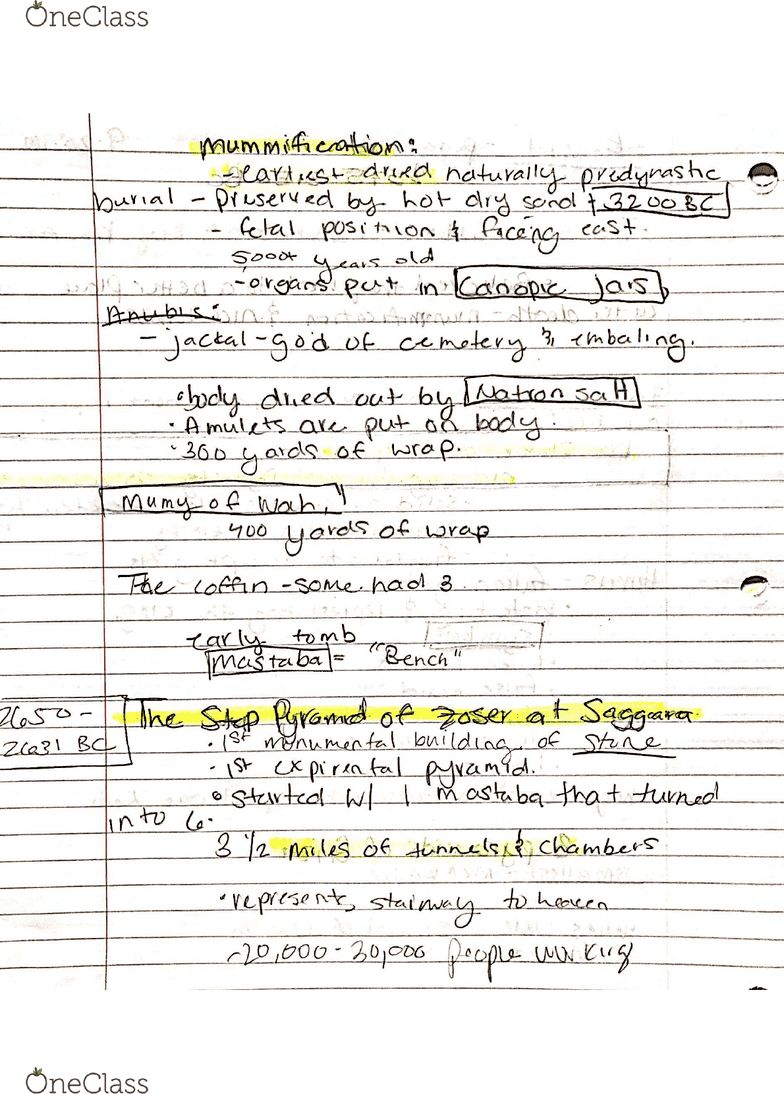 OneClass
mummification:
- earliest dried naturally predynastic
burial - preserved by hot dry sand & 3200 BC
- fetal position & facing east.
5000+ years old
- organs put in Canopic Jars
Anubis:
- jackal-god of cemetery & embaling.
• body dried out by Natron salt
• Amulets are put on body.
• 300 yards of wrap.
Mumy of Wah,
400 yards of wrap
The coffin - some had 3.
early tomb
Mastaba = "Bench"
2650 - The Step Pyramid of Zoser at Saggara
2631 BC • 1st monumental building of Stone
• 1st expirental pyramid.
• started w/ 1 mastaba that turned
into 6.
3 1/2 miles of tunnels & chambers
• represents stairway to heaven
~20,000-30,000 people working
OneClass